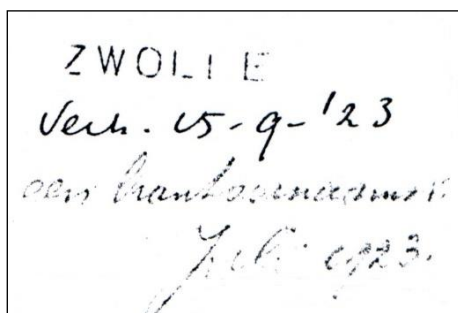 ZWOLLE
Verh. 15-9-'23
Juli 1923.